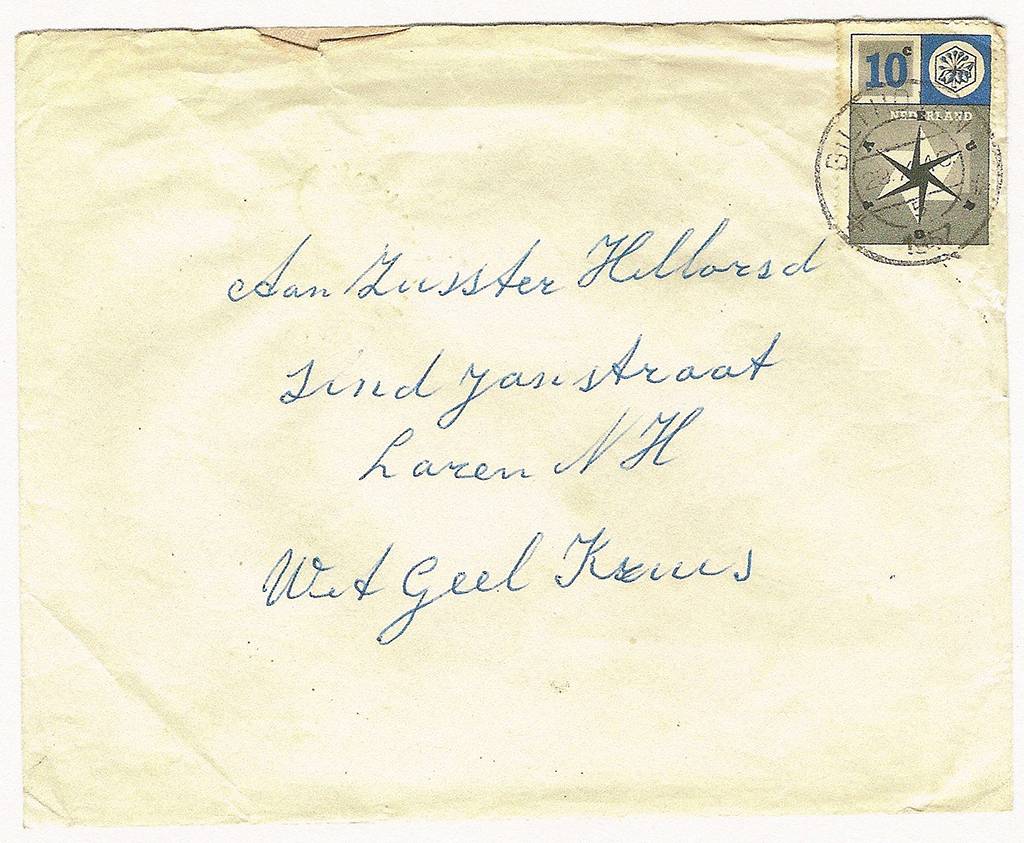 10 c
NEDERLAND
BILTHOVEN
1957
Aan Zusster Hillorsd
Sind Jan straat
Laren N H
Wit Geel Kruus